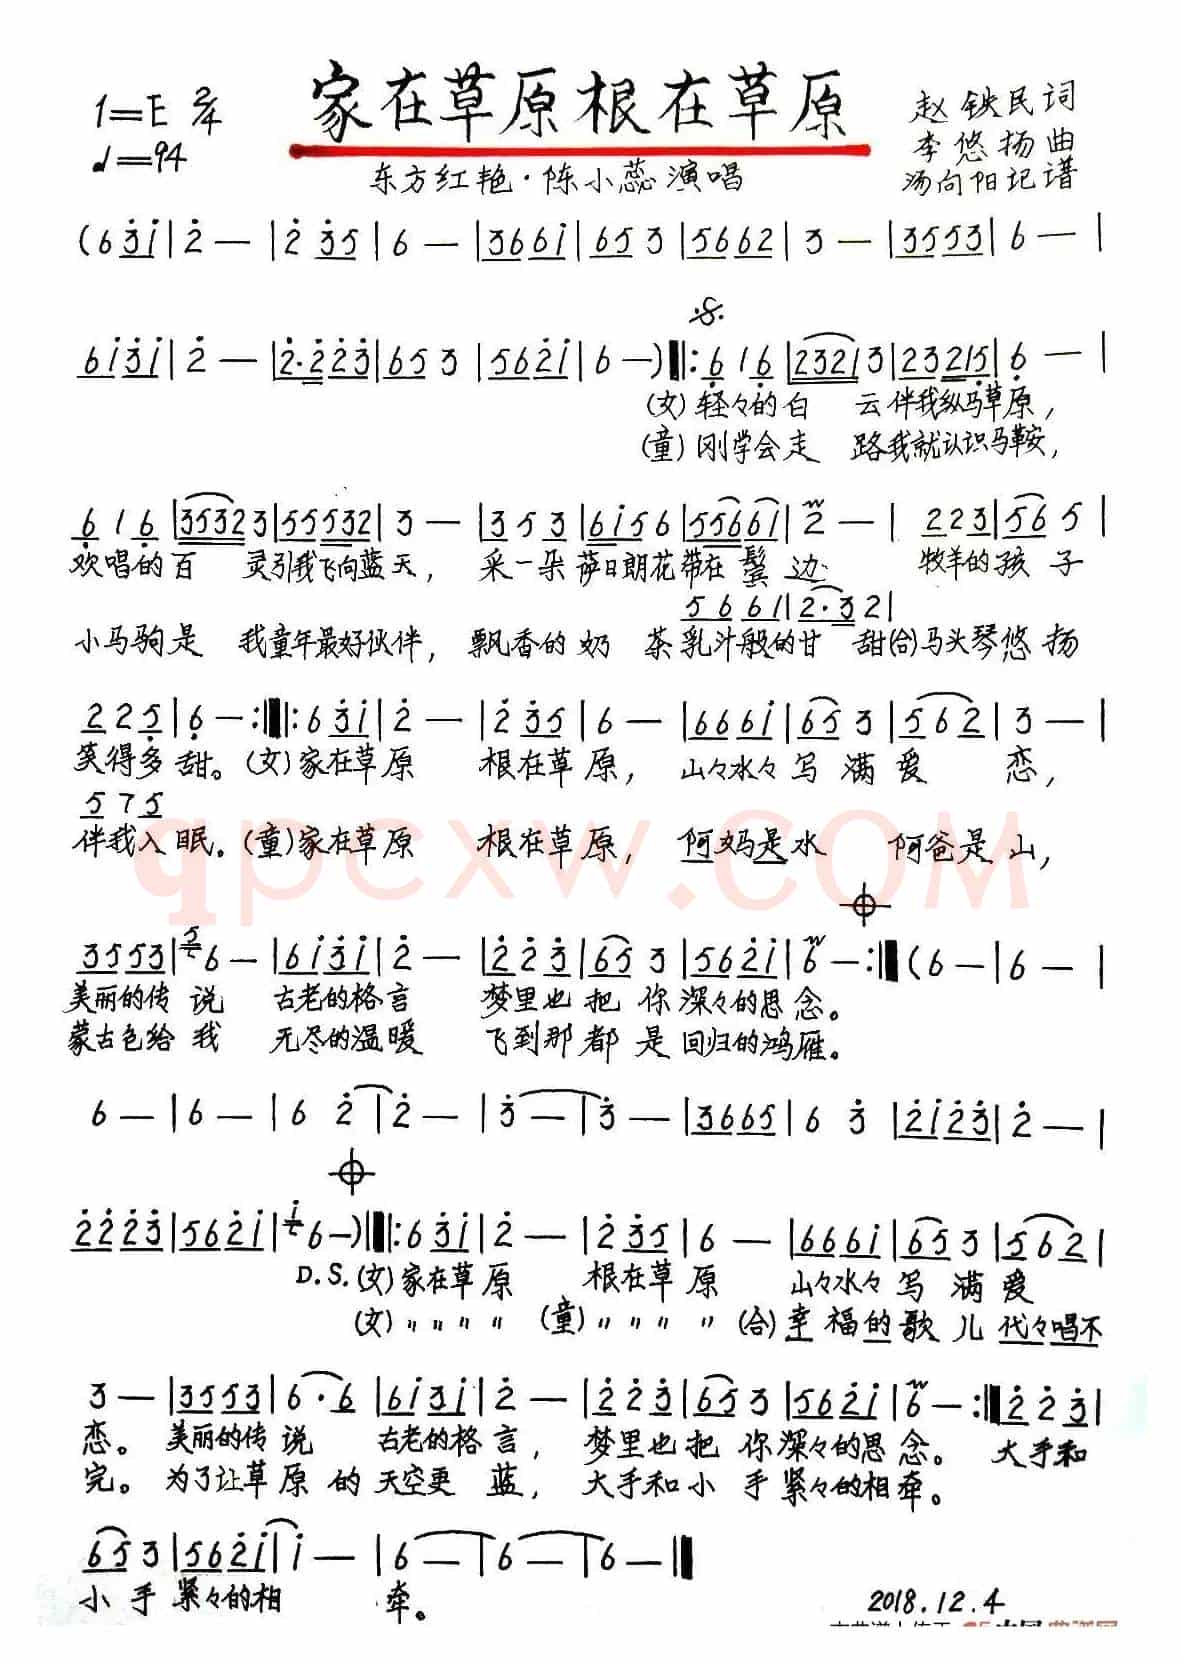 家在草原根在草原
1=E 2/4
♩=94
赵铁民词
李悠扬曲
汤向阳记谱
东方红艳·陈小蕊演唱
(6 3̇1̇|2̇ —|2̇ 3̇5|6 —|3661̇|653|5662|3 —|3553|6 —|
61̇3̇1̇|2̇ —|2̇·2̇2̇3̇|653|562̇1̇|6 —)‖:6̣16̣|23213|23215̣|6̣ —|
(女)轻々的白 云伴我纵马草原，
(童)刚学会走 路我就认识马鞍，
6̣16̣|35323|55532|3 —|353|61̇56|55661̇|2̇ —|223|565|
欢唱的百 灵引我飞向蓝天， 采一朵萨日朗花带在鬓边 牧羊的孩子
5661|2·32|
小马驹是 我童年最好伙伴， 飘香的奶 茶乳汁般的甘 甜(合)马头琴悠扬
225̣|6̣ —:‖:63̇1̇|2̇ —|2̇3̇5|6 —|6661̇|653|562|3 —|
笑得多甜。(女)家在草原 根在草原， 山々水々写满爱 恋，
575
伴我入眠。(童)家在草原 根在草原， 阿妈是水 阿爸是山，
3553|6 —|61̇3̇1̇|2̇ —|2̇2̇3̇|653|562̇1̇|6 —:‖(6 —|6 —|
美丽的传说 古老的格言 梦里也把你深々的思念。
蒙古色给我 无尽的温暖 飞到那都是回归的鸿雁。
6 —|6 —|6 2̇|2̇ —|3̇ —|3̇ —|3665|6 3̇|2̇1̇2̇3̇|2̇ —|
2̇2̇2̇3̇|562̇1̇|6 —)‖:63̇1̇|2̇ —|2̇3̇5|6 —|6661̇|653|562|
D.S.(女)家在草原 根在草原 山々水々写满爱
(女)〃〃〃〃 (童)〃〃〃〃 (合)幸福的歌儿代々唱不
3 —|3553|6·6|61̇3̇1̇|2̇ —|2̇2̇3̇|653|562̇1̇|6 —:‖2̇2̇3̇|
恋。 美丽的传说 古老的格言， 梦里也把你深々的思念。 大手和
完。 为了让草原的天空更蓝， 大手和小手紧々的相牵。
653|562̇1̇|1̇ —|6 —|6 —|6 —‖
小手紧々的相 牵。
2018.12.4
qpcxw.COM